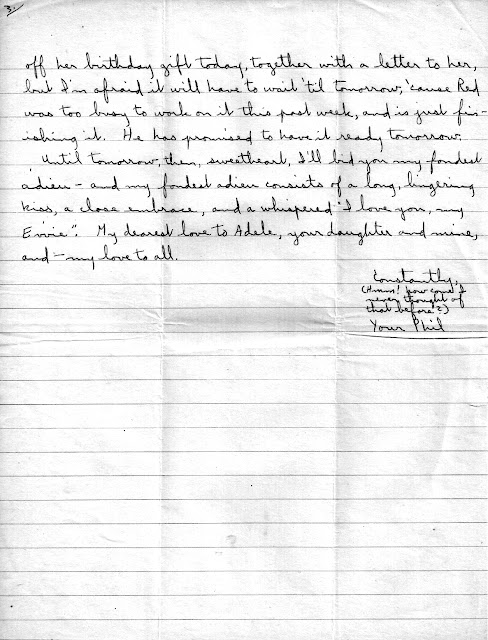 3.
off her birthday gift today, together with a letter to her,
but I'm afraid it will have to wait 'til tomorrow, 'cause Red
was too busy to work on it this past week, and is just fin-
ishing it. He has promised to have it ready tomorrow.
Until tomorrow, then, sweetheart, I'll bid you my fondest
adieu - and my fondest adieu consists of a long, lingering
kiss, a close embrace, and a whispered "I love you, my
Evvie". My dearest love to Adele, your daughter and mine,
and - my love to all.
Constantly,
(Hmmm! how come I
never thought of
that before?)
Your Phil